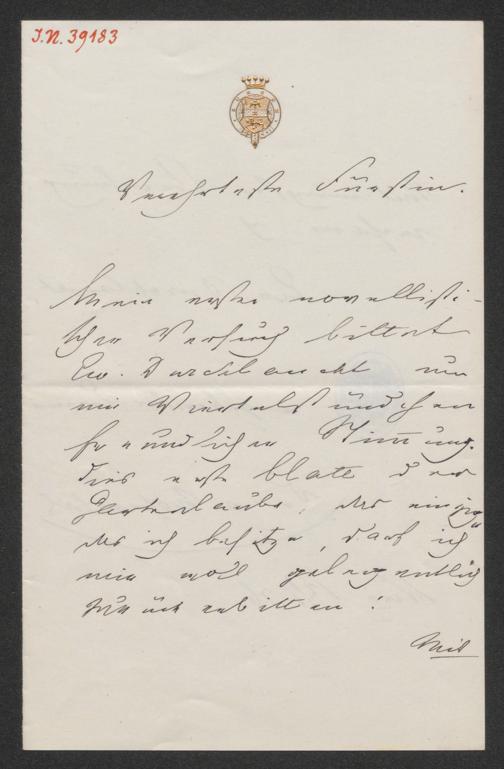 I.N. 39183
Verehrteste Fürstin.
Mein erster novellisti-
scher Versuch bittet
Ew. Durchlaucht um
ein Viertelstündchen
freundlicher Stimmung.
Dies erste Blatt der
Gartenlaube, das einzige
das ich besitze, darf ich
mir wol gelegentlich
zurückerbitten!
Mit